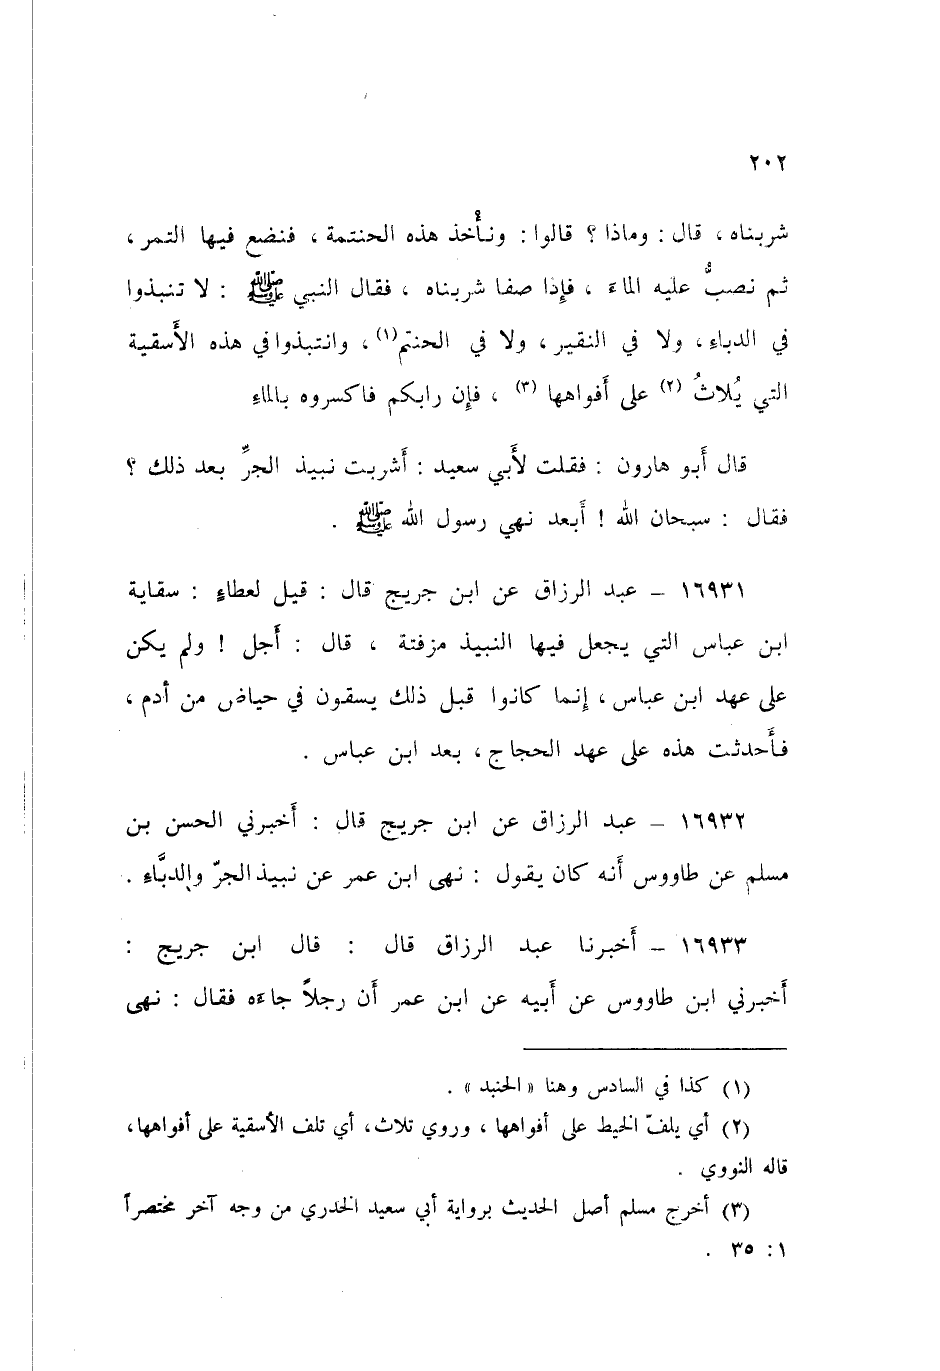 ٢٠٢
شربناه ، قال : وماذا ؟ قالوا : ونأُخذ هذه الحنتمة ، فنضع فيها التمر ،
ثم نصبُّ عليه الماء ، فإِذا صفا شربناه ، فقال النبي ﷺ : لا تنبذوا
في الدباءِ ، ولا في النقير ، ولا في الحنتم (١) ، وانتبذوا في هذه الأَسقية
التي يُلاثُ (٢) على أَفواهها (٣) ، فإِن رابكم فاكسروه بالماءِ
قال أَبو هارون : فقلت لأَبي سعيد : أَشربت نبيذ الجرِّ بعد ذلك ؟
فقال : سبحان الله ! أَبعد نهي رسول الله ﷺ .
١٦٩٣١ – عبد الرزاق عن ابن جريج قال : قيل لعطاءٍ : سقاية
ابن عباس التي يجعل فيها النبيذ مزفتة ، قال : أَجل ! ولم يكن
على عهد ابن عباس ، إِنما كانوا قبل ذلك يسقون في حياض من أدم ،
فأَحدثت هذه على عهد الحجاج ، بعد ابن عباس .
١٦٩٣٢ – عبد الرزاق عن ابن جريج قال : أَخبرني الحسن بن
مسلم عن طاووس أَنه كان يقول : نهى ابن عمر عن نبيذ الجرّ والدبَّاءِ .
١٦٩٣٣ – أَخبرنا عبد الرزاق قال : قال ابن جريج :
أَخبرني ابن طاووس عن أَبيه عن ابن عمر أَن رجلاً جاءَه فقال : نهى
(١) كذا في السادس وهنا « الحنبد » .
(٢) أي يلفّ الخيط على أفواهها ، وروي تلاث ، أي تلف الأسقية على أفواهها ،
قاله النووي .
(٣) أخرج مسلم أصل الحديث برواية أبي سعيد الخدري من وجه آخر مختصراً
١ : ٣٥ .